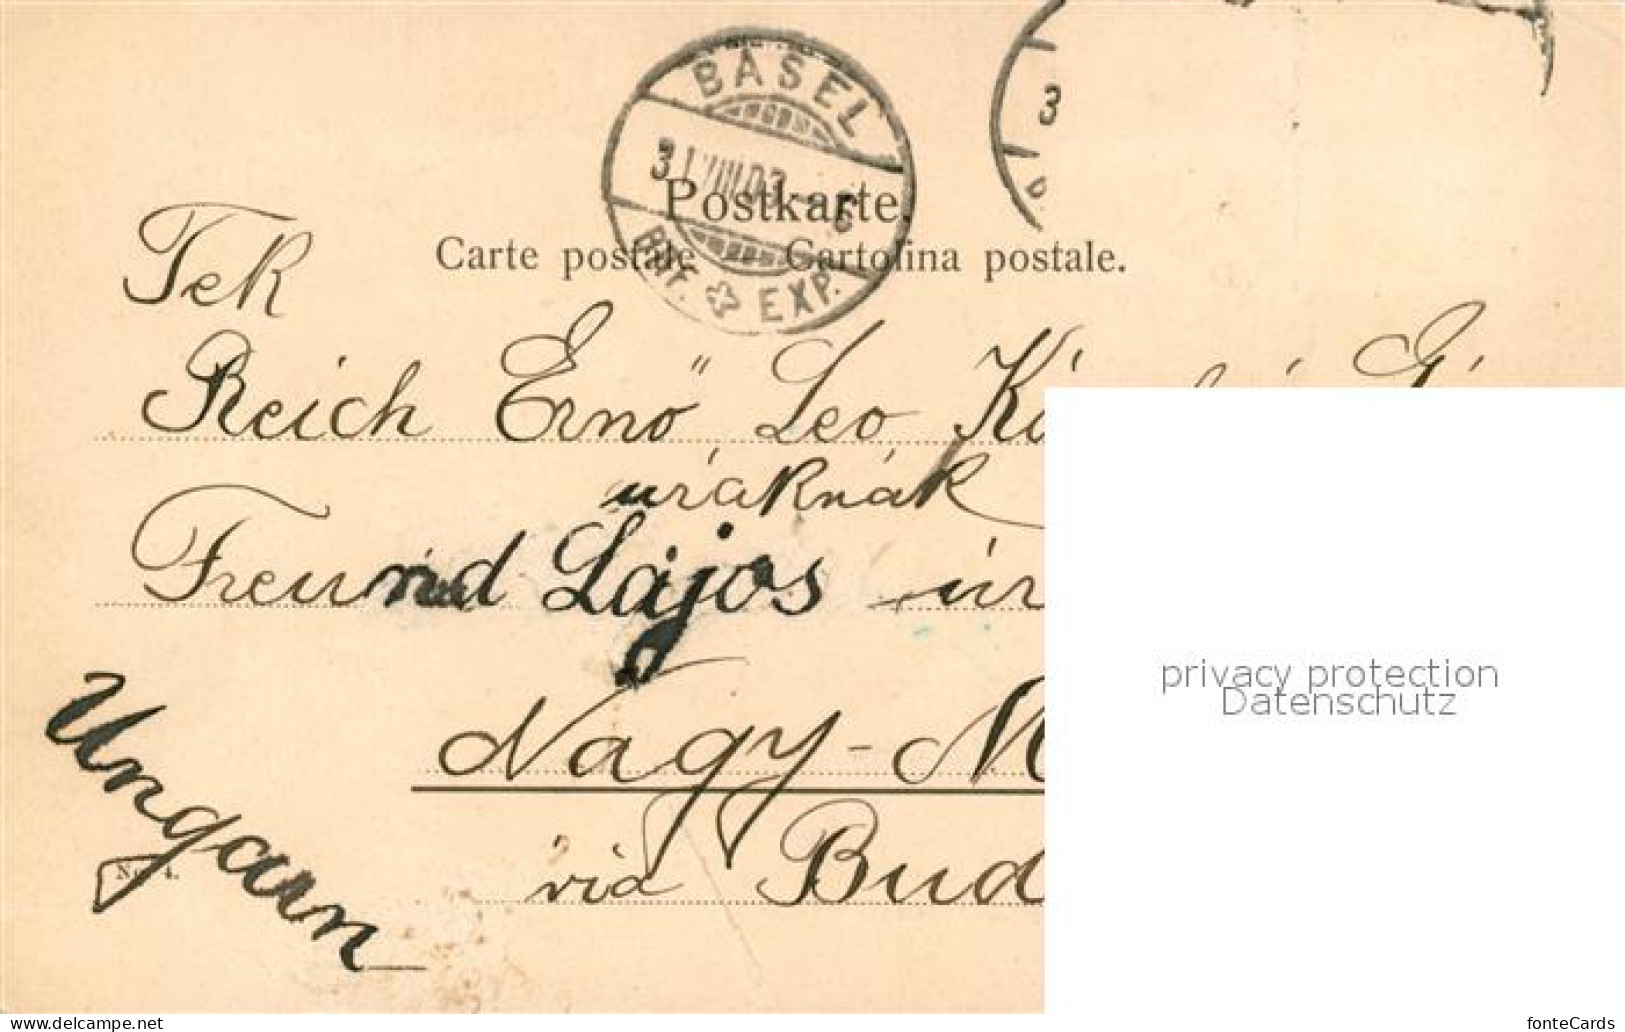 BASEL
31.VIII.03. - 6
Brf. EXP.
3
Postkarte.
Carte postale Cartolina postale.
Tek
Reich Ernő Leo
uraknák
Freund Lajos úr
Nagy-M
via Bud
Ungarn
No. 4.
privacy protection
Datenschutz
www.delcampe.net
fonteCards